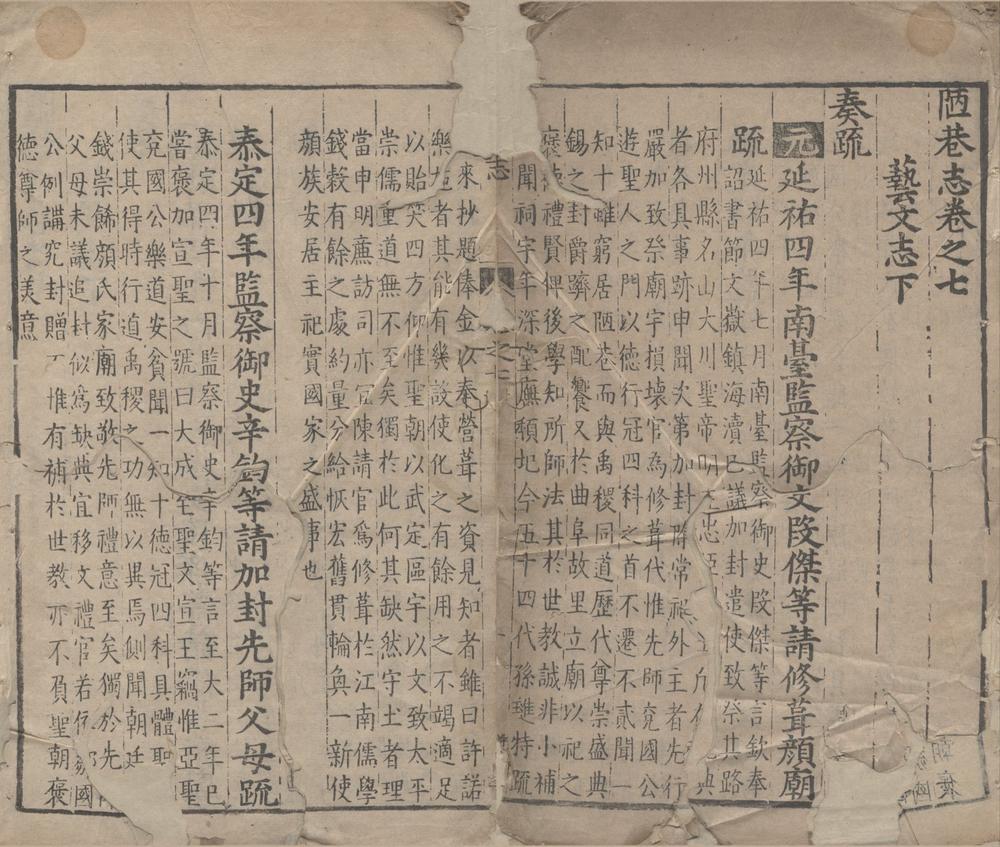 陋巷志卷之七
藝文志下
奏疏
元延祐四年南臺監察御文段傑等請修葺顏廟
疏
延祐四年七月南臺監察御史段傑等言欽奉
詔書節文嶽鎮海瀆已議加封遣使致祭其路
府州縣名山大川聖帝明王忠臣
者各具事跡申聞次第加封除常祀外主者先行
嚴加致祭廟宇損壞官為修葺代惟先師兗國公
遊聖人之門以德行冠四科之首不遷不貳聞一
知十雖窮居陋巷而與禹稷同道歷代尊崇盛典
錫之封爵躋之配饗又於曲阜故里立廟以祀之
褒德禮賢俾後學知所師法其於世教誠非小補
聞祠宇年深堂廡頹圮今五十四代孫特疏
志
卷之七
來抄題俸金以奉營葺之資見知者雖曰許諾
樂者其能有幾設使化之有餘用之不竭適足
以貽笑四方仰惟聖朝以武定區宇以文致太平
崇儒重道無不至矣獨於此何其缺然守土者理
當申明廉訪司亦宜陳請官爲修葺於江南儒學
錢穀有餘之處約量分給恢宏舊貫輪奐一新使
顏族安居主祀實國家之盛事也
泰定四年監察御史辛鈞等請加封先師父母疏
泰定四年十月監察御史辛鈞等言至大二年已
嘗褒加宣聖之號曰大成至聖文宣王竊惟亞聖
兗國公樂道安貧聞一知十德冠四科具體聖
使其得時行道禹稷之功無以異焉側聞朝廷
錢崇飾顏氏家廟致敬先師禮意至矣獨於先
父母未議追封似爲缺典宜移文禮官若
公例講究封贈不惟有補於世教亦不負聖朝褒
德尊師之美意